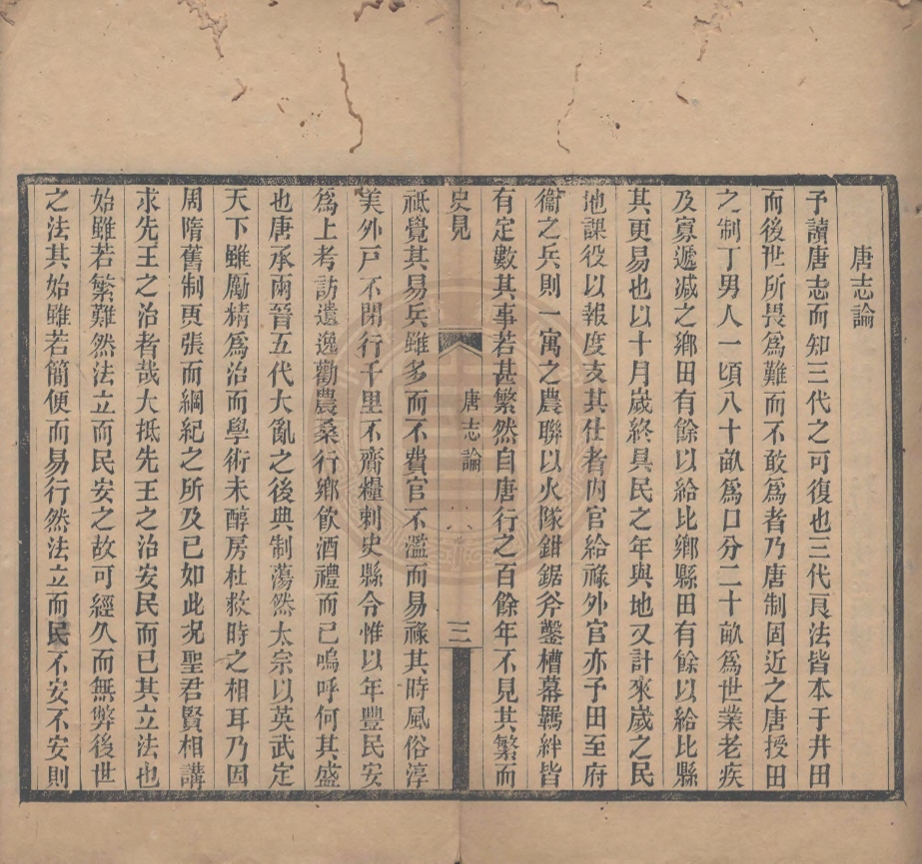 唐志論
予讀唐志而知三代之可復也三代良法皆本于井田
而後世所畏爲難而不敢爲者乃唐制固近之唐授田
之制丁男人一頃八十畝爲口分二十畝爲世業老疾
及寡遞减之鄉田有餘以給比鄉縣田有餘以給比縣
其更易也以十月嵗終具民之年與地又計來嵗之民
地課役以報度支其仕者内官給祿外官亦予田至府
衞之兵則一寓之農聯以火隊鉗鋸斧鑿槽幕羈絆皆
有定數其事若甚繁然自唐行之百餘年不見其繁而
史見
唐志論
三
祗覺其易兵雖多而不費官不濫而易祿其時風俗淳
美外戸不閉行千里不齎糧刺史縣令惟以年豐民安
爲上考訪遺逸勸農桑行鄉飲酒禮而已嗚呼何其盛
也唐承兩晉五代大亂之後典制蕩然太宗以英武定
天下雖勵精爲治而學術未醇房杜救時之相耳乃因
周隋舊制更張而綱紀之所及已如此况聖君賢相講
求先王之治者哉大抵先王之治安民而已其立法也
始雖若繁難然法立而民安之故可經久而無弊後世
之法其始雖若簡便而易行然法立而民不安不安則